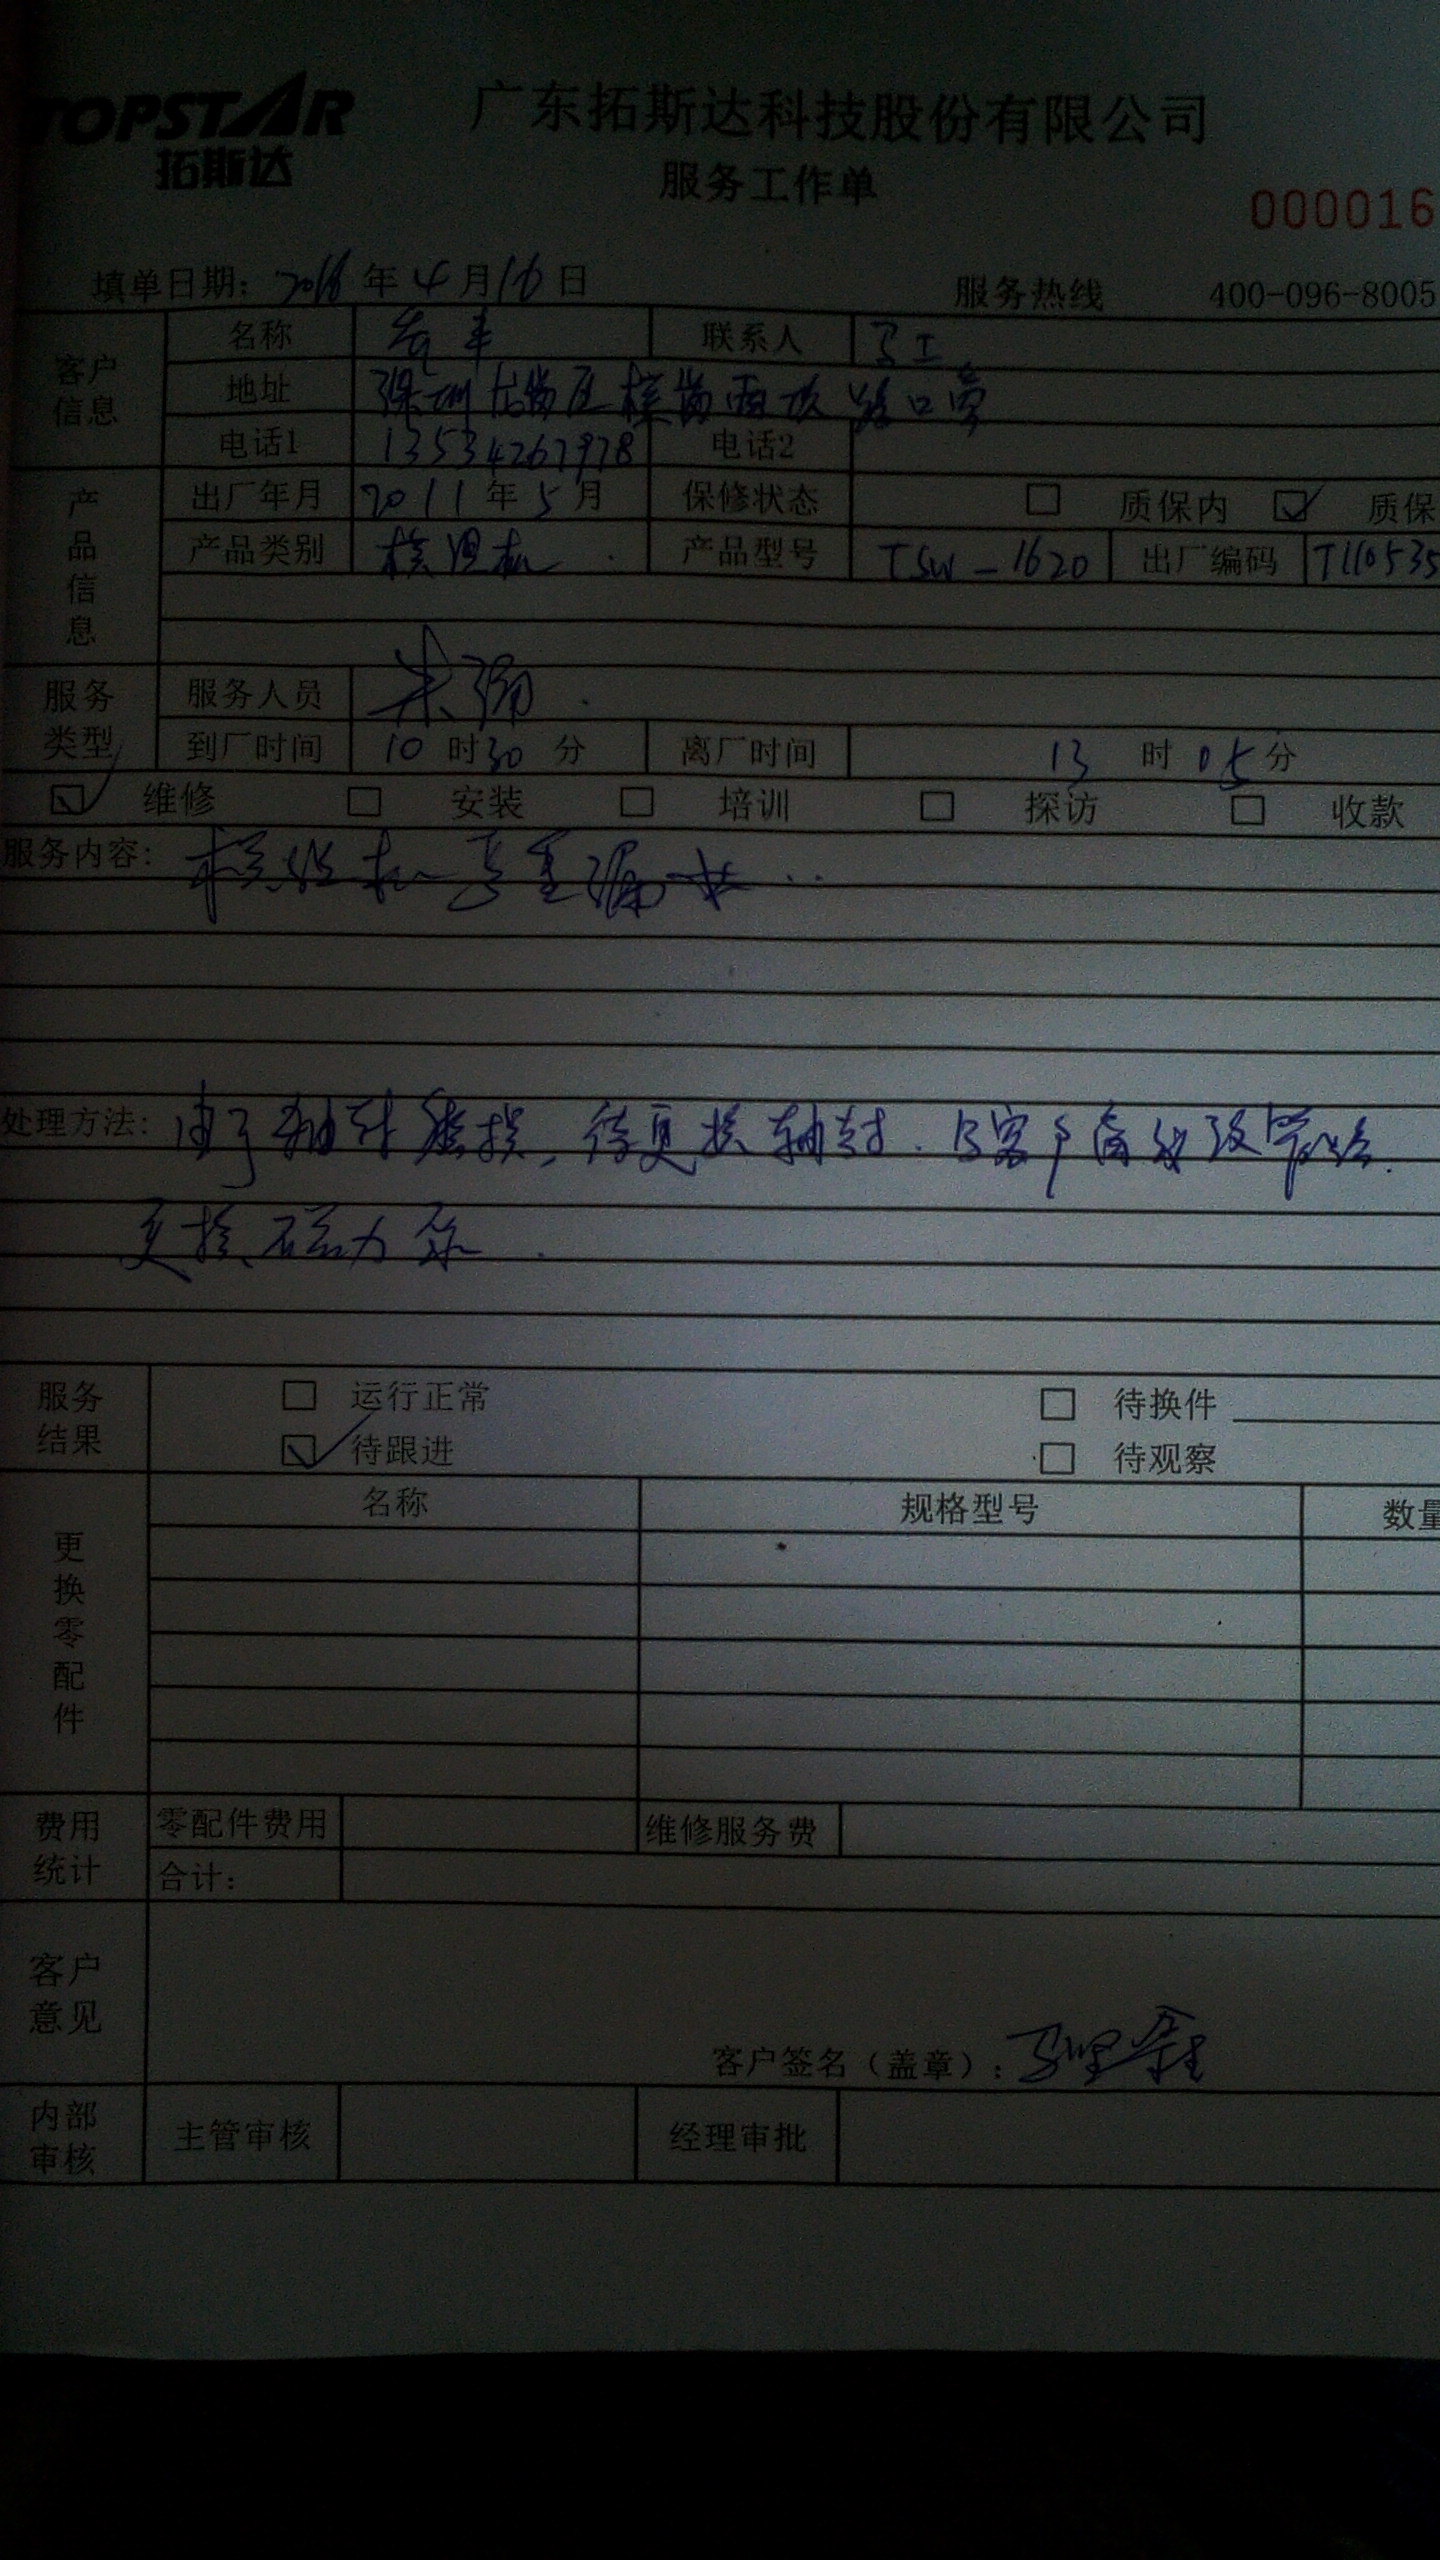 TOPSTAR
拓斯达
广东拓斯达科技股份有限公司
服务工作单
000016
填单日期: 2016 年 4 月 16 日 服务热线 400-096-8005
客户信息
名称 联系人 马工
地址 深圳 路口旁
电话1 13534267978 电话2
产品信息
出厂年月 2011 年 5 月 保修状态 质保内 质保
产品类别 模温机 产品型号 TSW-1620 出厂编码 T110535
服务类型
服务人员 朱强
到厂时间 10 时 30 分 离厂时间 13 时 05 分
维修 安装 培训 探访 收款
服务内容: 模温机严重漏水..
处理方法: 由于轴封磨损, 待更换轴封. 与客户商议改管路.
更换磁力泵.
服务结果
运行正常 待换件
待跟进 待观察
更换零配件
名称 规格型号 数量
费用统计
零配件费用 维修服务费
合计:
客户意见
客户签名（盖章）:
内部审核
主管审核 经理审批